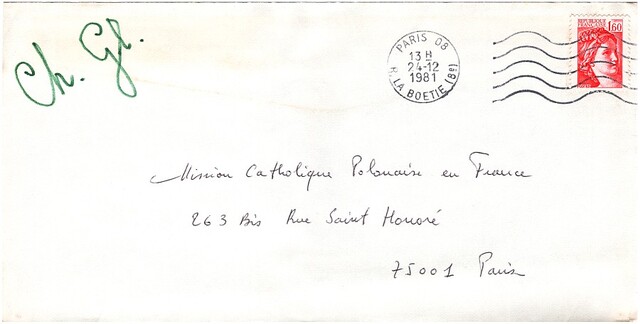 Ch. Gl.
PARIS 08
13 H
24-12
1981
R. LA BOETIE (8e)
REPUBLIQUE FRANÇAISE
1,60
Mission Catholique Polonaise en France
263 Bis Rue Saint Honoré
75001 Paris